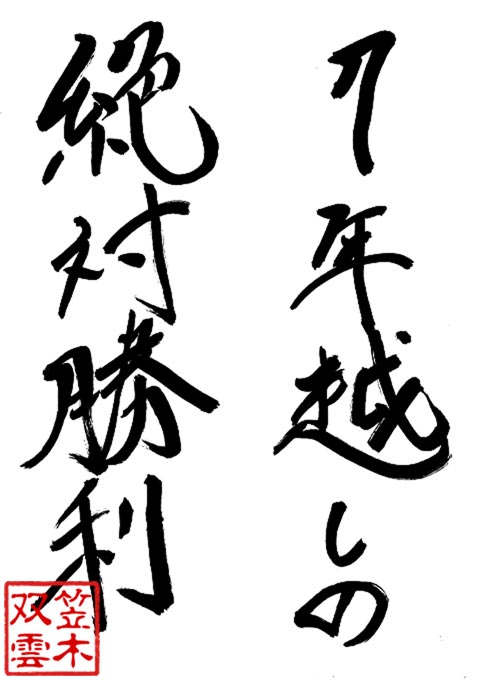 7年越しの
絶対勝利
笠木
双雲